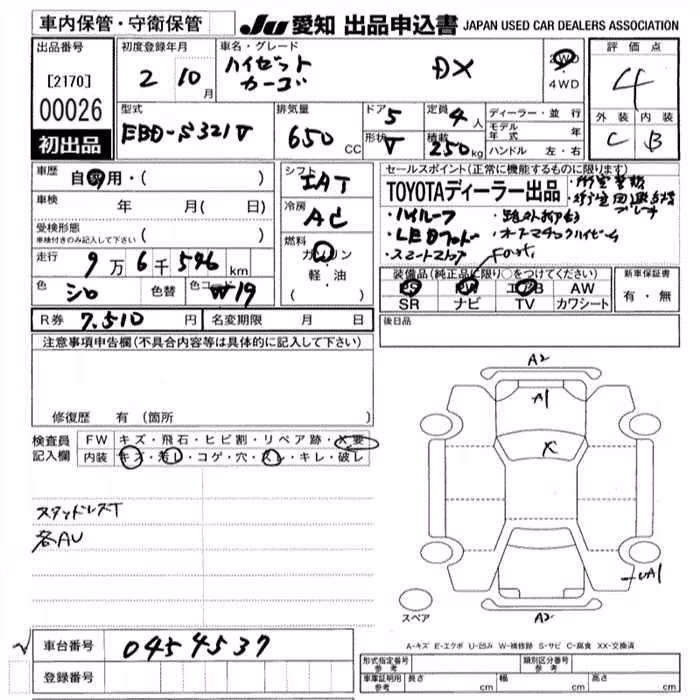 車内保管・守衛保管
JU 愛知 出品申込書 JAPAN USED CAR DEALERS ASSOCIATION
出品番号
[2170]
00026
初出品
初度登録年月
2 10月
車名・グレード
ハイゼット
カーゴ
DX
2WD
・
4WD
評価点
4
外装 内装
C B
型式
EBD-S321V
排気量
650 CC
ドア 5
形状 V
定員 4人
積載 250kg
ディーラー・並行
モデル年式 年
ハンドル 左・右
車歴
自家用・( )
車検 年 月( 日)
受検形態
車検付きのみ記入して下さい ( )
走行 9万6千546km
色 シロ 色替 色コード W19
シフト
IAT
冷房
AC
燃料
ガソリン
・
軽・油
・( )
セールスポイント(正常に機能するものに限ります)
TOYOTAディーラー出品
・ハイルーフ
・LEDフォグ
・スマートアシスト
・オートマチックハイビーム
装備品(純正品に限り○をつけてください)
PS PW エアB AW
SR ナビ TV カワシート
新車保証書
有・無
R券 7,510円 名変期限 月 日
後日品
注意事項申告欄(不具合内容等は具体的に記入して下さい)
修復歴 有 (箇所 )
検査員
記入欄
FW キズ・飛石・ヒビ割・リペア跡・X要
内装 キズ・汚レ・コゲ・穴・スレ・キレ・破レ
スタッドレスT
各AU
A2
A1
X
UA1
A2
スペア
A-キズ E-エクボ U-凹み W-補修跡 S-サビ C-腐食 XX-交換済
車台番号 0454537
登録番号
形式指定番号
参考
類別区分番号
参考
車庫証明用
参考
長さ cm 幅 cm 高さ cm